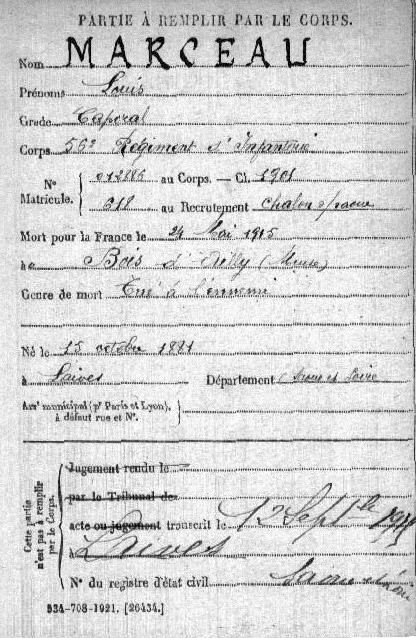 PARTIE À REMPLIR PAR LE CORPS.
Nom MARCEAU
Prénoms Louis
Grade Caporal
Corps 56e Régiment d'Infanterie
N° Matricule. { 012886 au Corps. — Cl. 1901
318 au Recrutement Chalon s/saone
Mort pour la France le 24 Mai 1915
à Bois d'Ailly (Meuse)
Genre de mort Tué à l'ennemi
Né le 15 octobre 1881
à Laives Département Saone et Loire
Arrt municipal (pr Paris et Lyon), à défaut rue et N°. }
Cette partie n'est pas à remplir par le Corps.
Jugement rendu le
par le Tribunal de
acte ou jugement transcrit le 12 Septbre
à Laives
N° du registre d'état civil Saone et Loire
534-708-1921. [26434.]